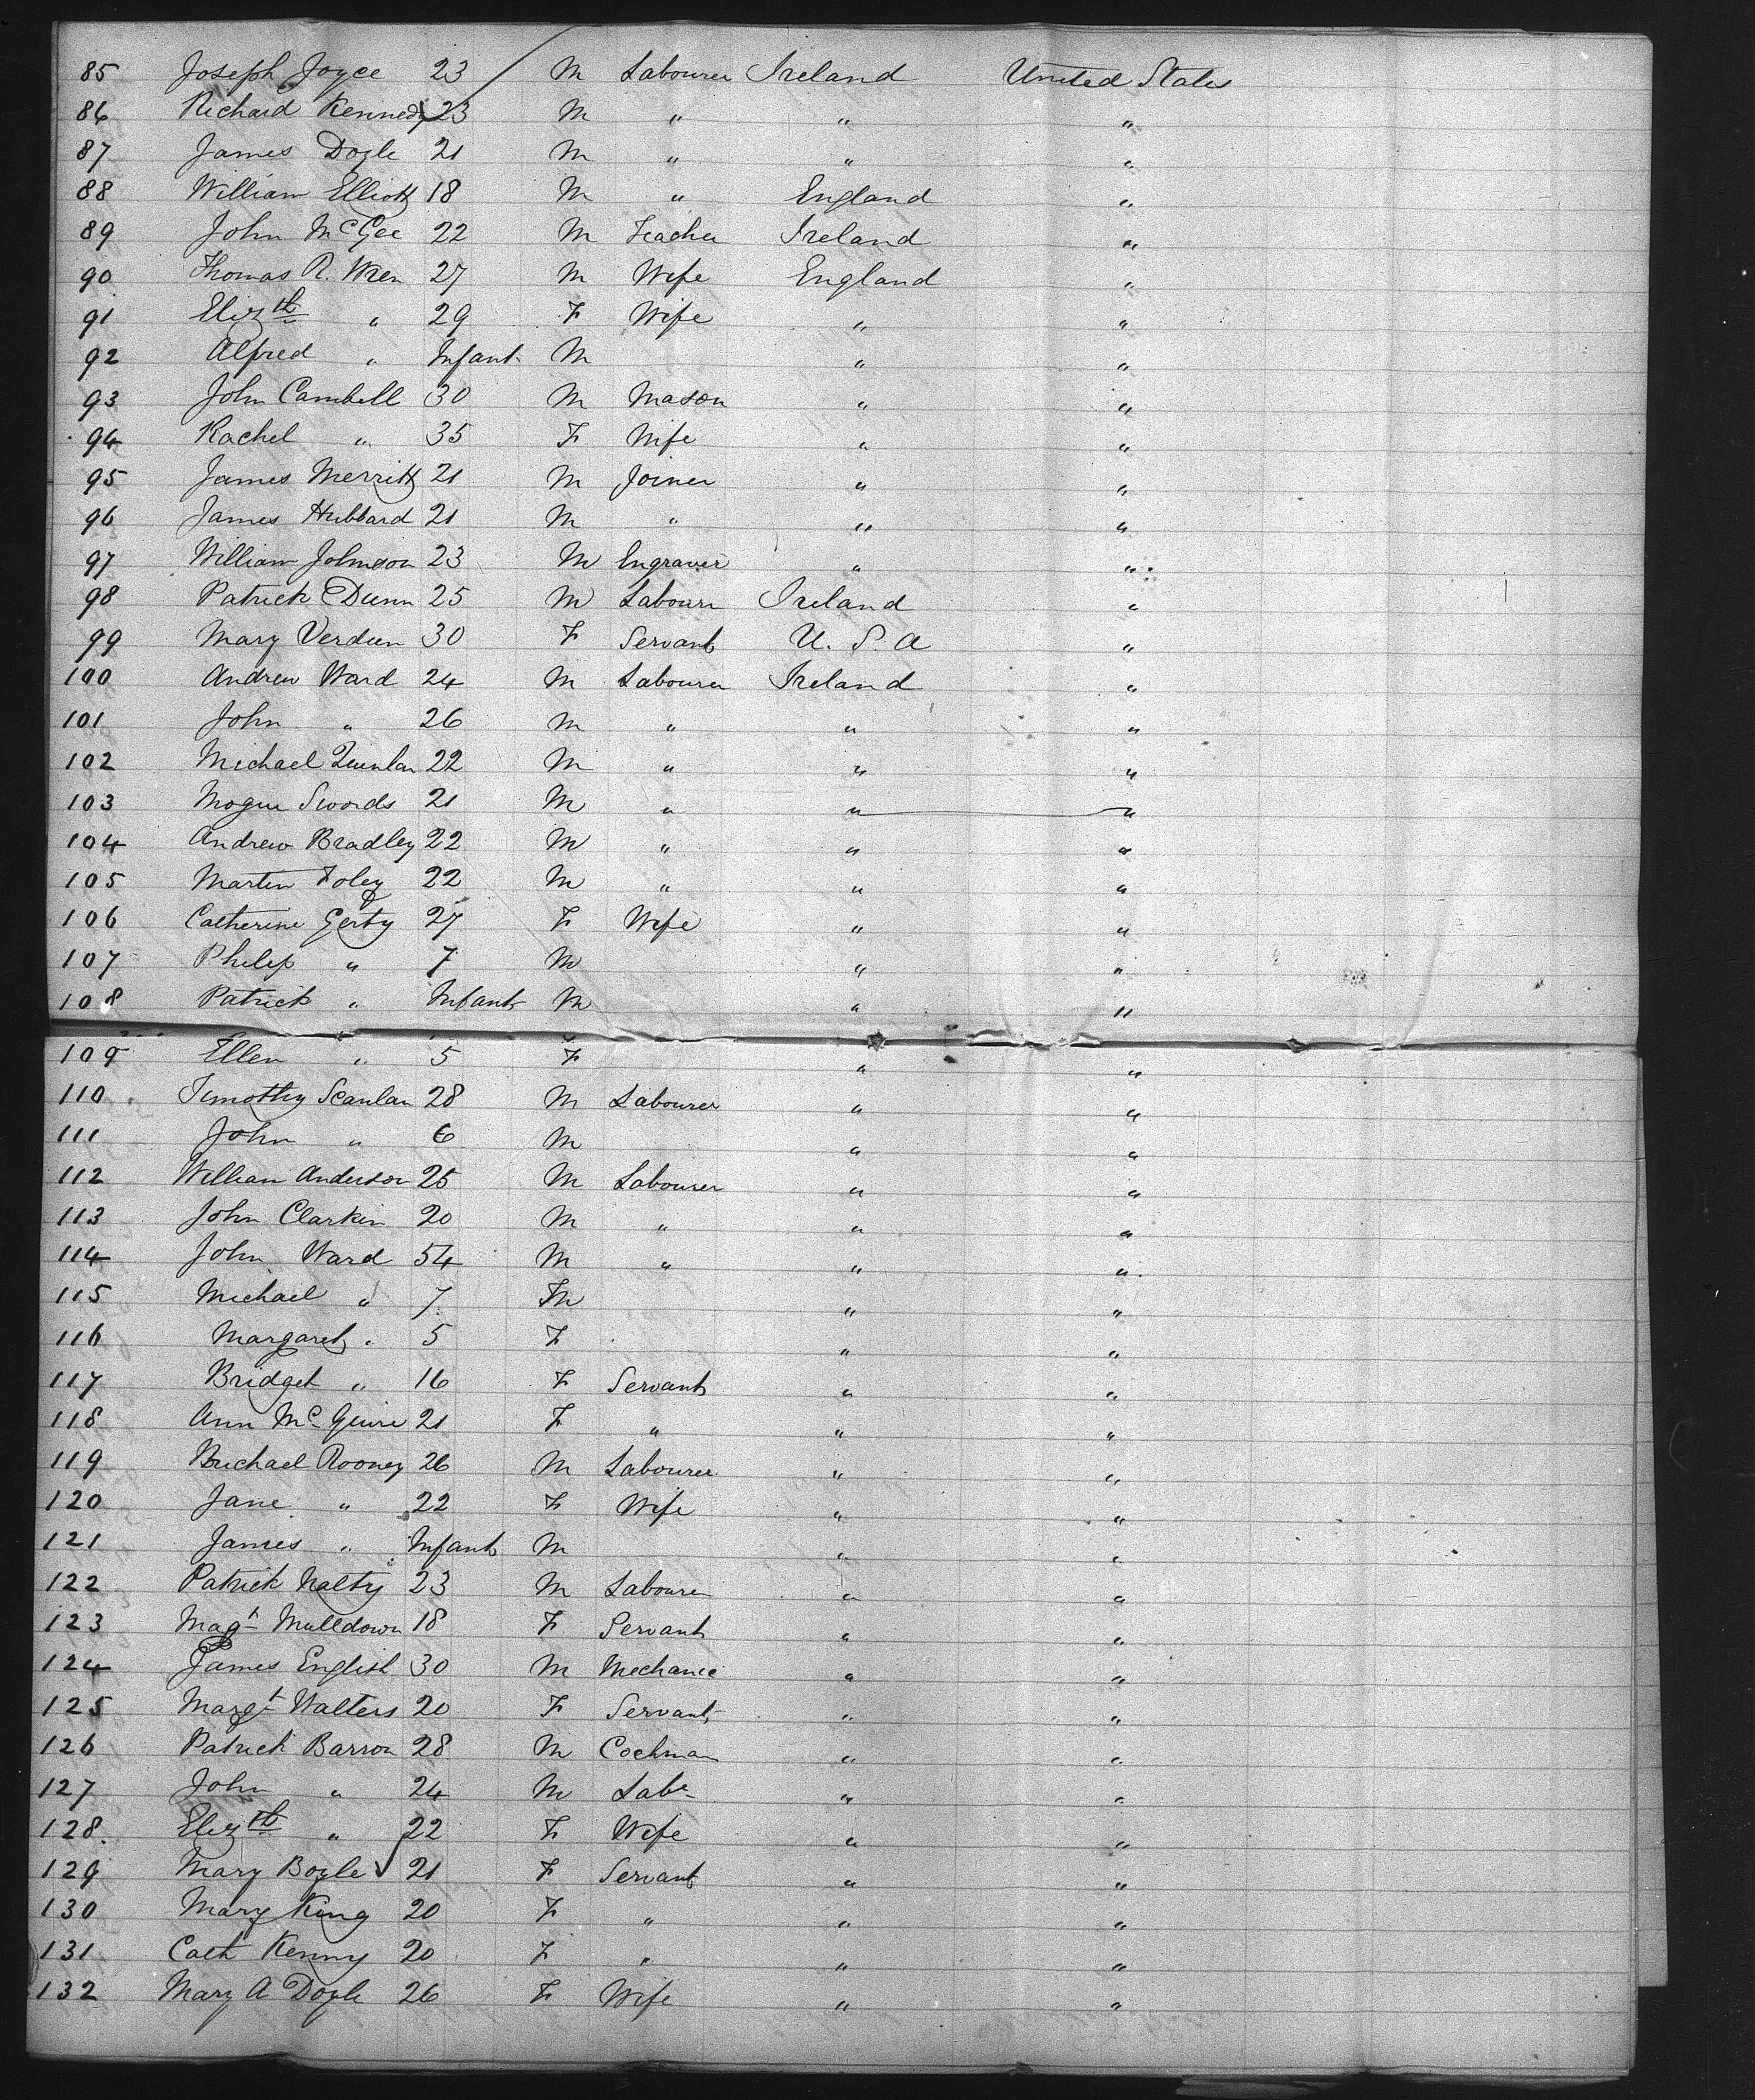 85 Joseph Joyce 23 M Labourer Ireland United States
86 Richard Kennedy 23 M " " "
87 James Doyle 21 M " " "
88 William Elliott 18 M " England "
89 John McGee 22 M Teacher Ireland "
90 Thomas R. Wren 27 M Wife England "
91 Elizth " 29 F Wife " "
92 Alfred " Infant M " "
93 John Cambell 30 M Mason " "
94 Rachel " 35 F Wife " "
95 James Merritt 21 M Joiner " "
96 James Hubbard 21 M " " "
97 William Johnson 23 M Engraver " "
98 Patrick Dunn 25 M Labourer Ireland "
99 Mary Verdun 30 F Servant U. S. A "
100 Andrew Ward 24 M Labourer Ireland "
101 John " 26 M " " "
102 Michael Quinlan 22 M " " "
103 Mogue Swords 21 M " " "
104 Andrew Bradley 22 M " " "
105 Martin Foley 22 M " " "
106 Catherine Gerty 27 F Wife " "
107 Philip " 7 M " "
108 Patrick " Infant M " "
109 Ellen " 5 F " "
110 Timothy Scanlan 28 M Labourer " "
111 John " 6 M " "
112 William Anderson 25 M Labourer " "
113 John Clarkin 20 M " " "
114 John Ward 54 M " " "
115 Michael " 7 M " "
116 Margaret " 5 F " "
117 Bridget " 16 F Servant " "
118 Ann McGuire 21 F " " "
119 Michael Rooney 26 M Labourer " "
120 Jane " 22 F Wife " "
121 James " Infant M " "
122 Patrick Nalty 23 M Labourer " "
123 Magt Mulldown 18 F Servant " "
124 James English 30 M Mechanic " "
125 Margt Walters 20 F Servant " "
126 Patrick Barron 28 M Cochman " "
127 John " 24 M Labr " "
128. Elizth " 22 F Wife " "
129 Mary Boyle 21 F Servant " "
130 Mary King 20 F " " "
131 Cath Kenny 20 F " " "
132 Mary A Doyle 26 F Wife " "